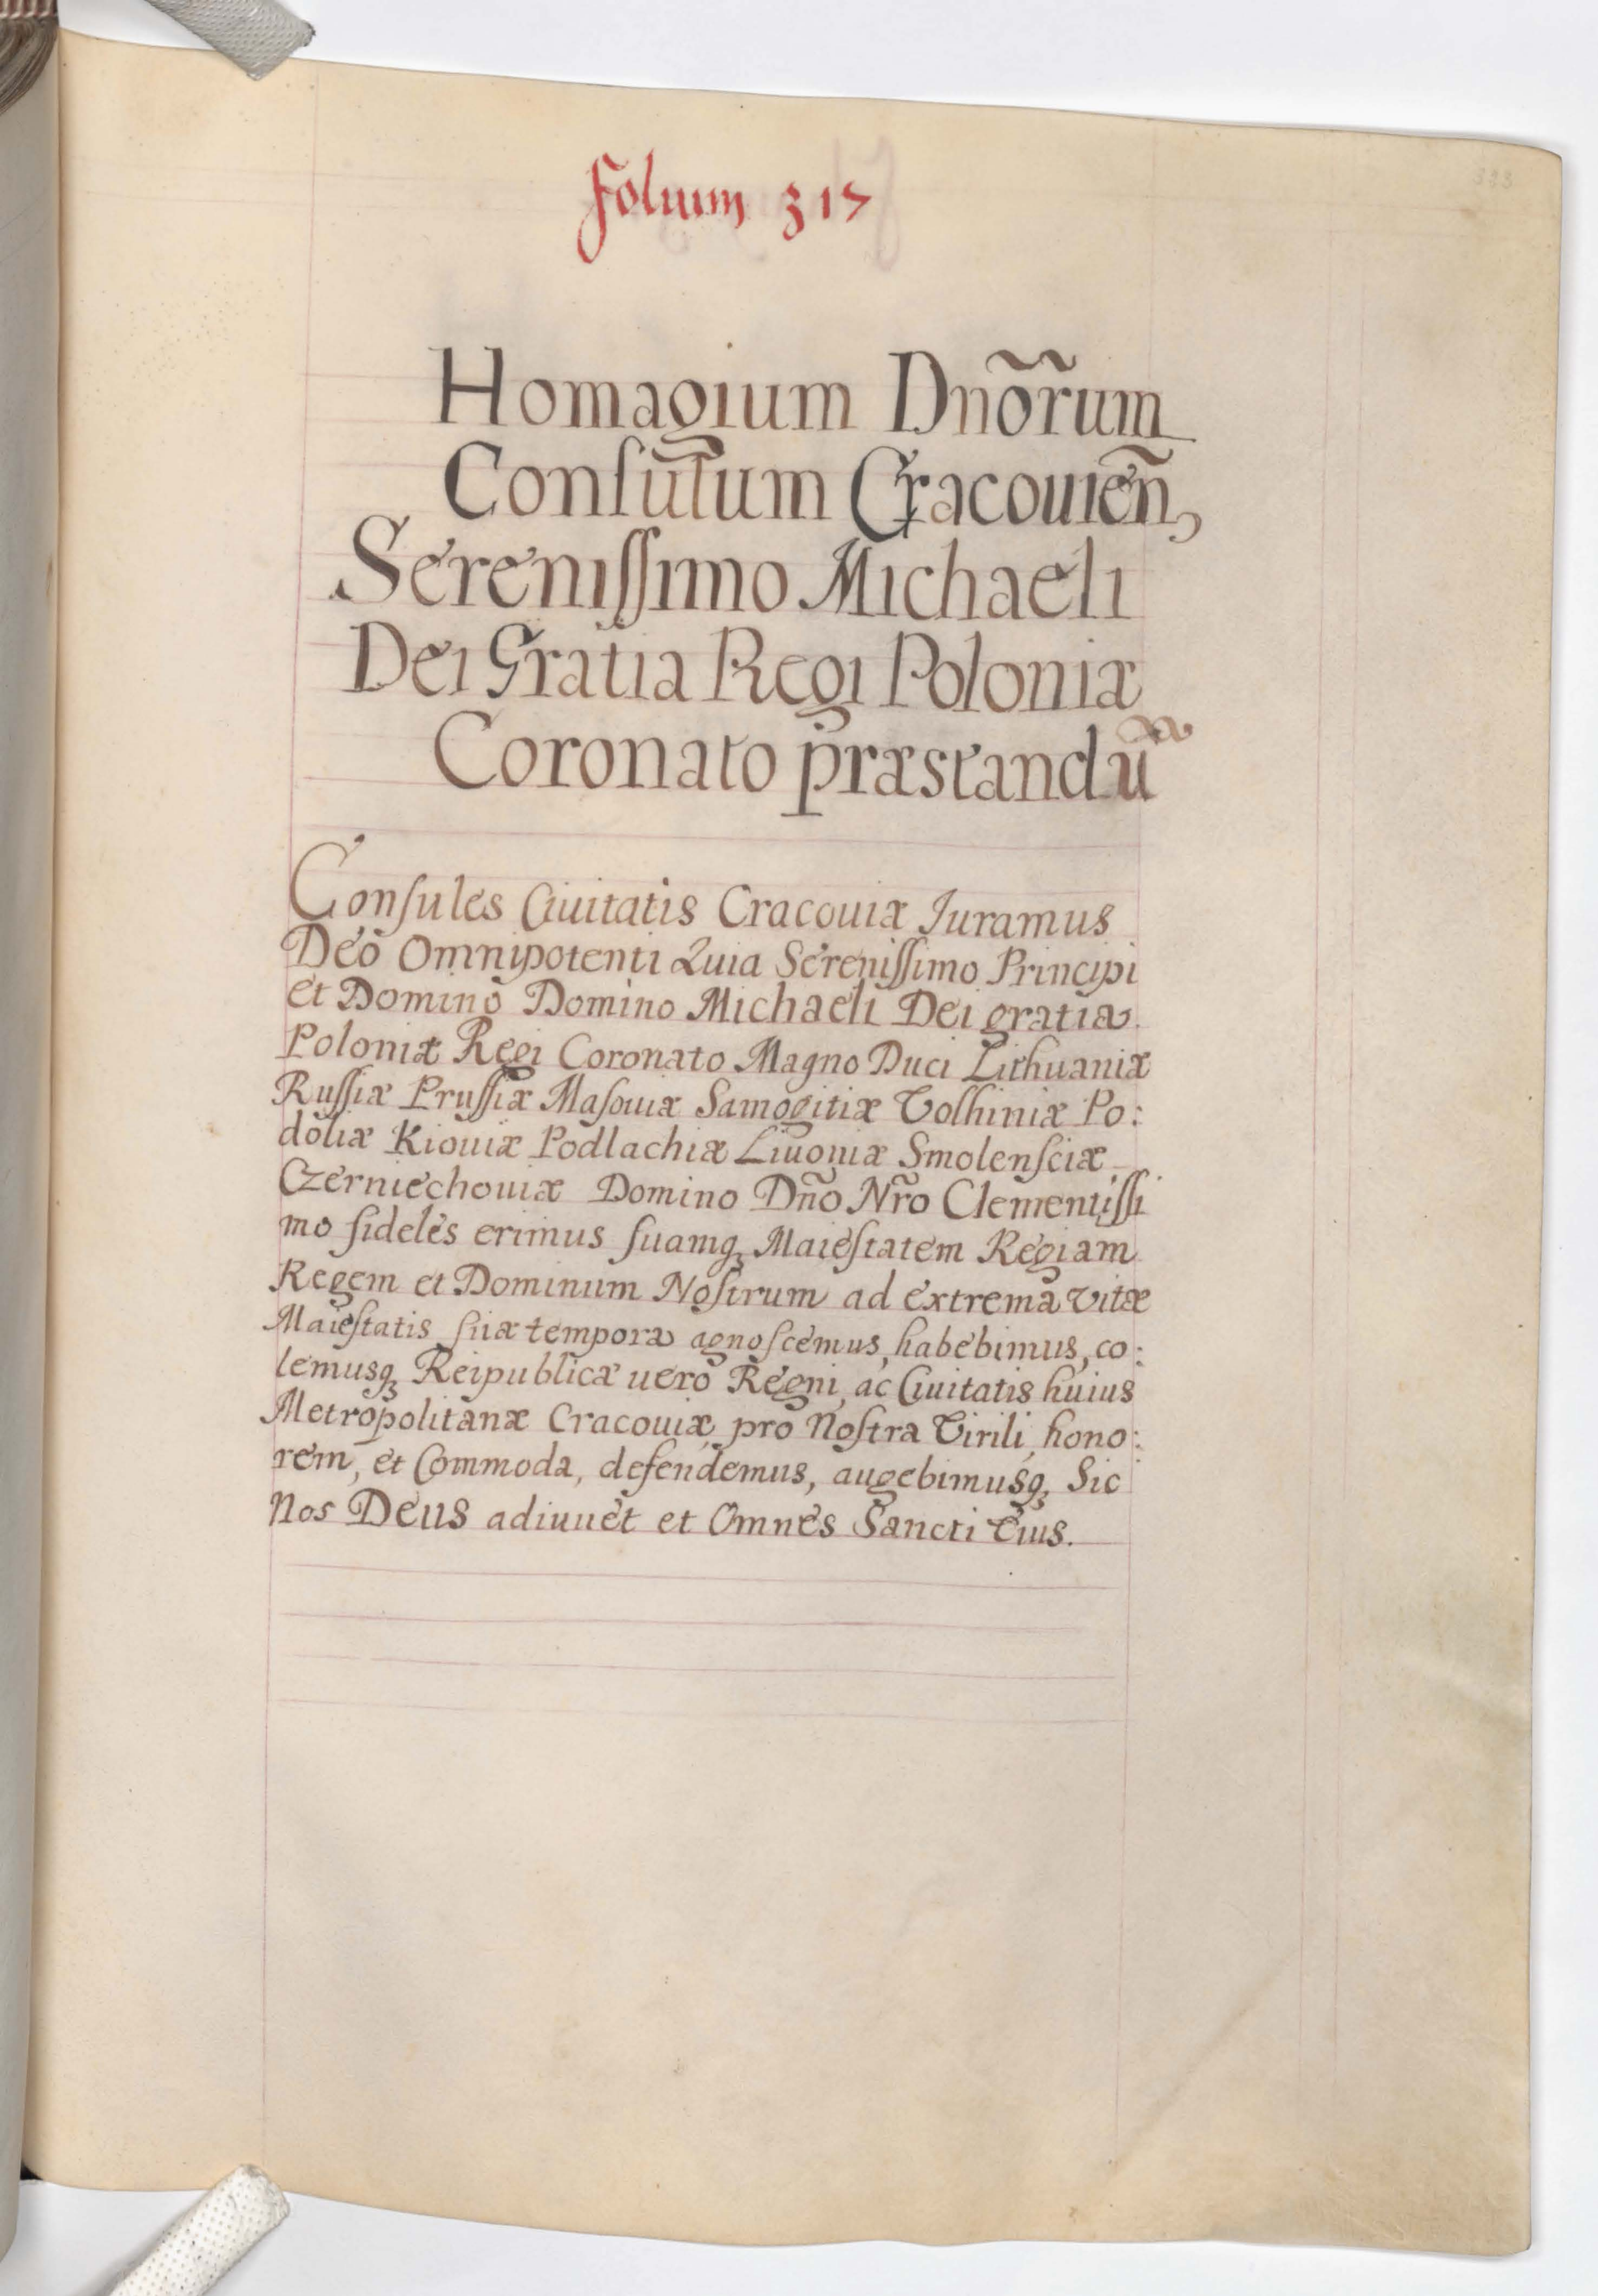 Folium 317
Homagium Dnõrum
Conſulum Cracouien̄,
Sereniſſimo Michaeli
Dei Gratia Regi Poloniæ
Coronato præstandū
Conſules Ciuitatis Cracouiæ Juramus
Deo Omnipotenti Quia Sereniſſimo Principi
et Domino Domino Michaeli Dei gratia
Poloniæ Regi Coronato Magno Duci Lithuaniæ
Ruſſiæ Pruſſiæ Maſouiæ Samogitiæ Volhiniæ Po:
doliæ Kiouiæ Podlachiæ Liuoniæ Smolenſciæ
Czerniechouiæ Domino Dño Nr̃o Clementiſſi
mo fideles erimus ſuamqꝫ Maieſtatem Regiam
Regem et Dominum Noſtrum ad extrema vitæ
Maieſtatis ſuæ tempora agnoſcemus, habebimus, co:
lemusqꝫ Reipublicæ uero Regni, ac Ciuitatis huius
Metropolitanæ Cracouiæ, pro Noſtra Virili, hono:
rem, et Commoda, defendemus, augebimusqꝫ Sic
Nos Deus adiuuet et Omnes Sancti Eius.